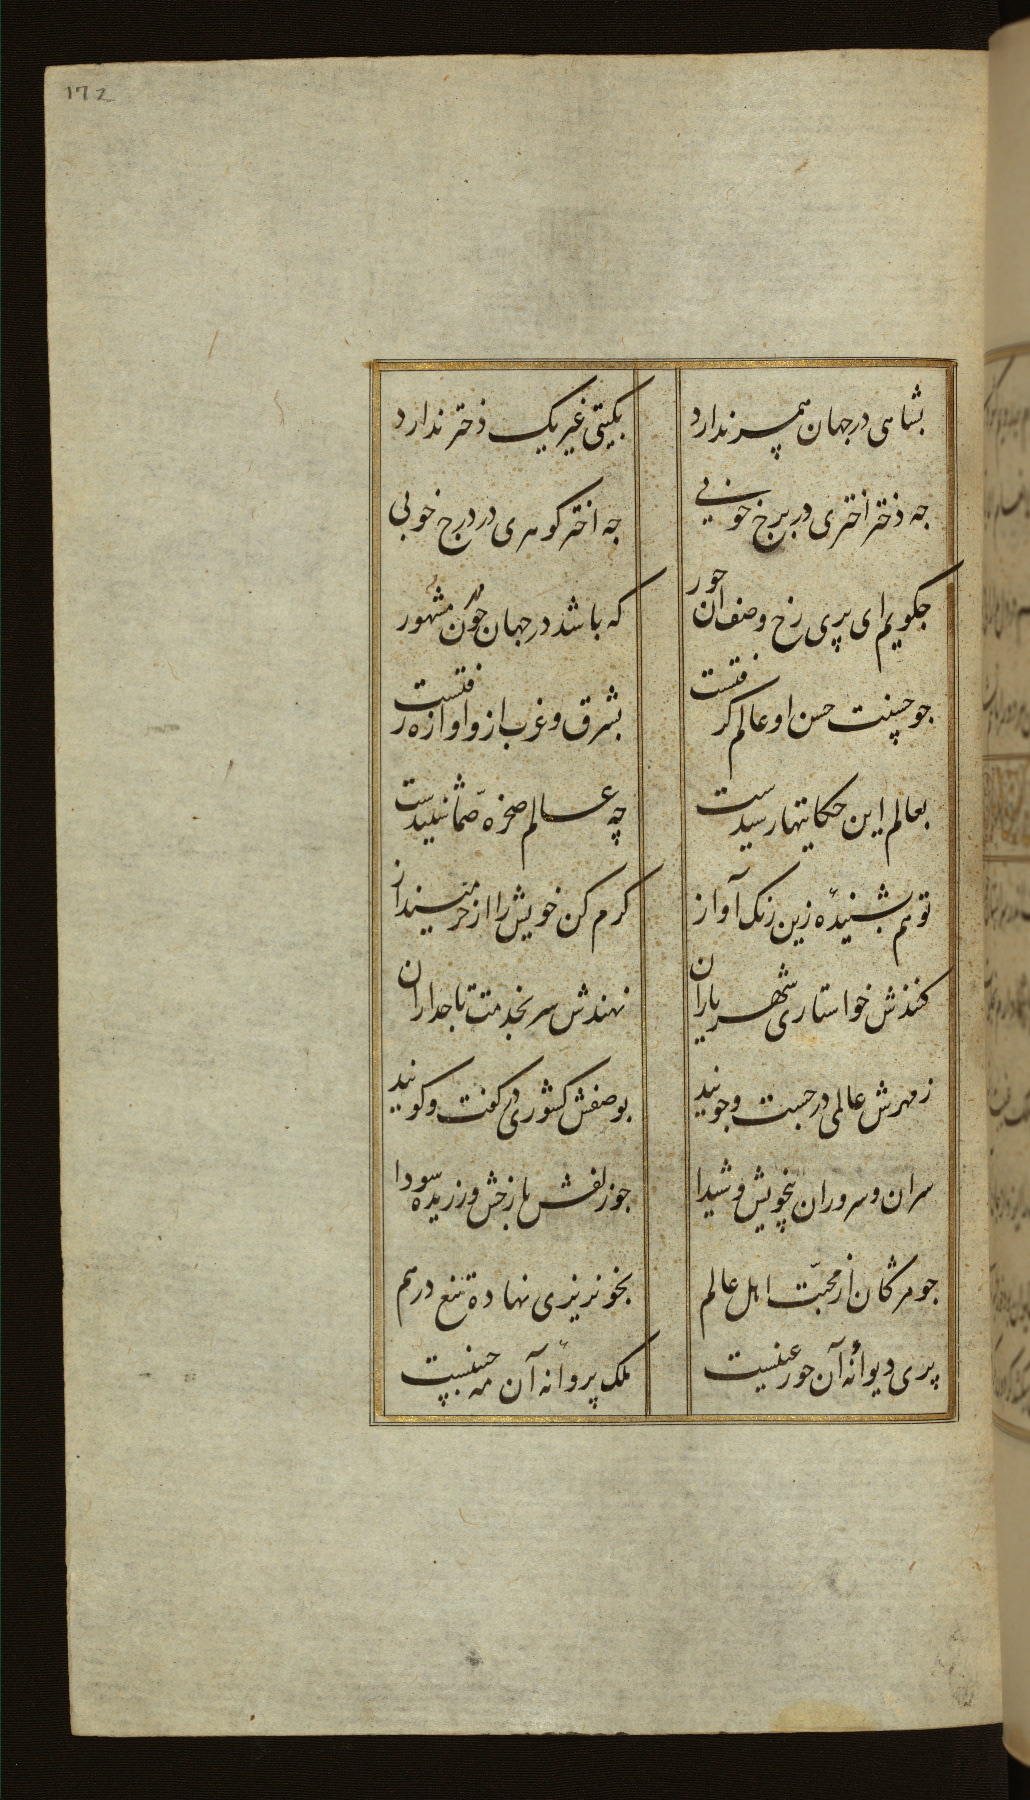 172
بشاهی در جهان همسر ندارد بکیتی غیر یک دختر ندارد
جه دختر اختری در برج خوبی جه اختر کوهری در درج خوبی
جکویم ای پری رخ وصف ان حور که باشد در جهان جون مشهور
جو صیت حسن او عالم کرفتست بشرق و غرب ازو اوازه رفتست
بعالم این حکایتها رسیدست چه عالم صخره صما شنیدست
تو هم بشنیده زین رنک آواز کرم کن خویش را از
کنندش خواستاری شهریاران نهندش سر بخدمت تاجداران
ز مهرش عالمی در جست و جویند بوصفش کشوری در کفت و کویند
سران و سروران بیخویش و شیدا جو زلفش با رخش ورزیده سودا
جو مژکان از محبت اهل عالم بخونریزی نهاده تیغ درهم
پری دیوانه آن حور عینست ملک پروانه آن مه جبینست